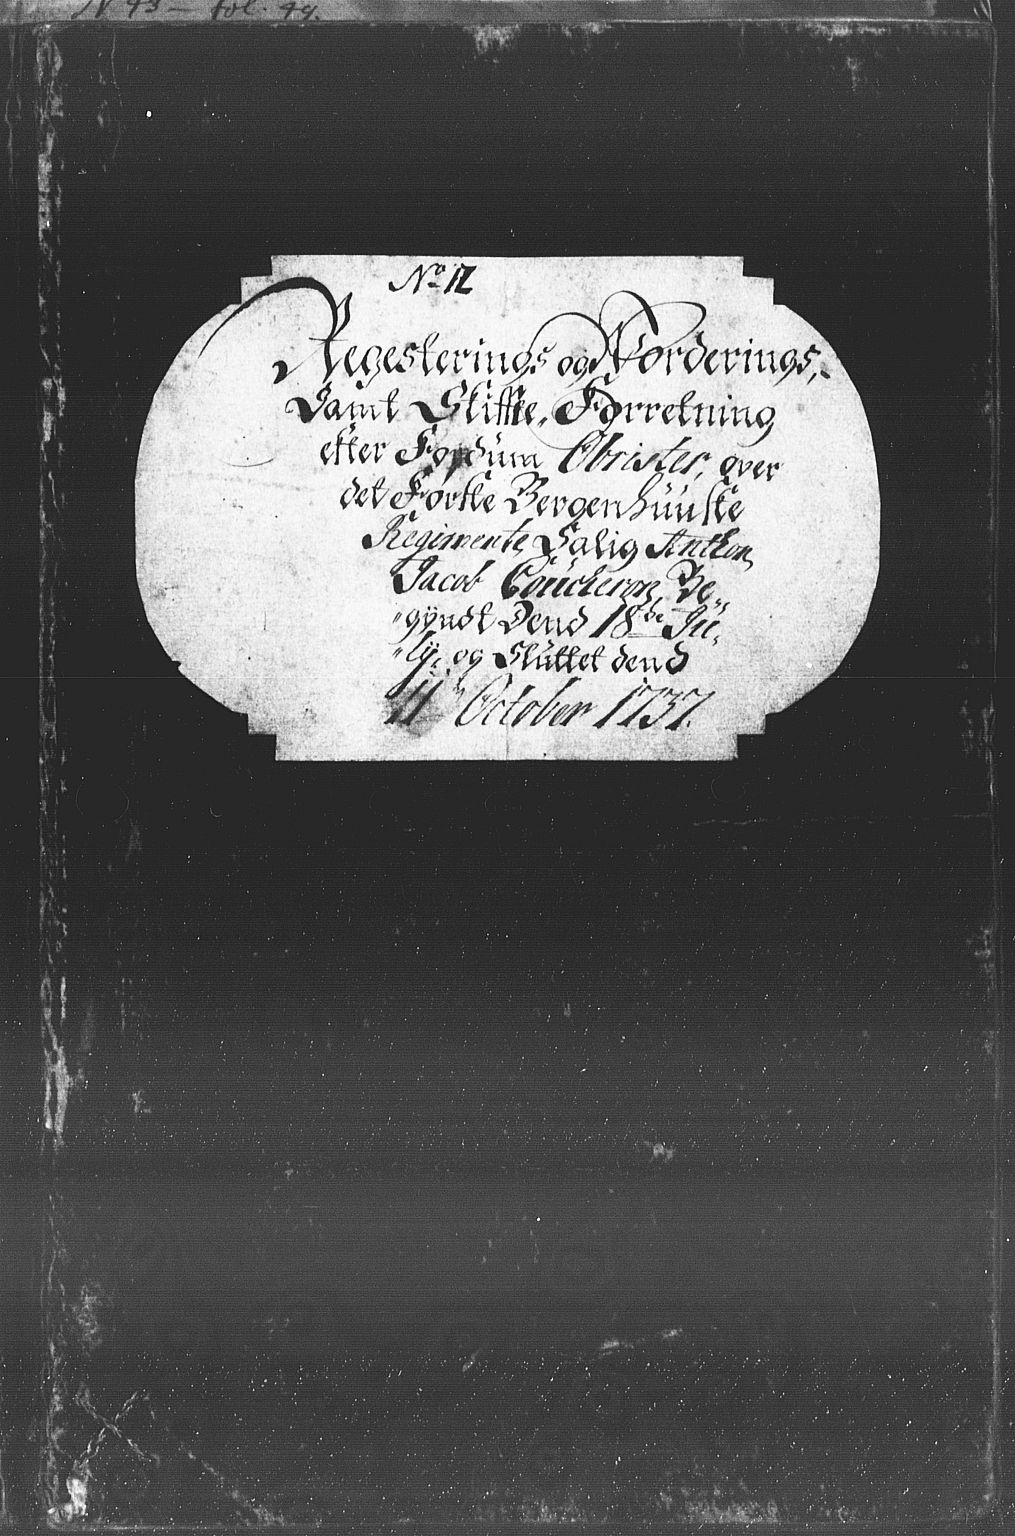 N 43 — fol. 49.
No 12
Regesterings og Worderings,
Samt Skiffte, Forretning
efter Fordum Obrister, over
det Førske Bergenhuuske
Regimente, Salig Anthon
Jacob Coucheron, Be„
„gÿndt Dend 18de Ju„
„lÿ, og Sluttet dend
11 October 1737.